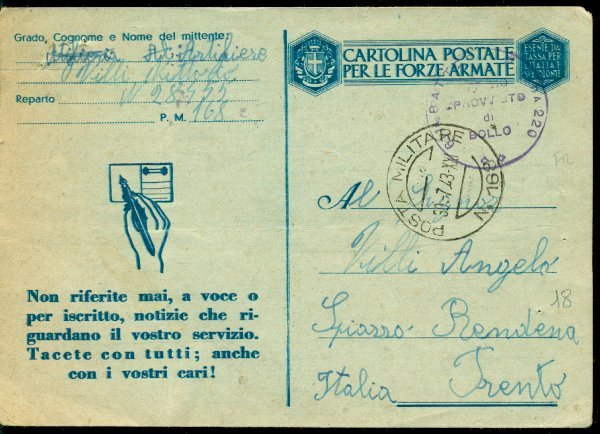 Grado, Cognome e Nome del mittente:
Artigliere
Villi
Reparto N 28455
P. M. 168 E
Non riferite mai, a voce o
per iscritto, notizie che ri-
guardano il vostro servizio.
Tacete con tutti; anche
con i vostri cari!
CARTOLINA POSTALE
PER LE FORZE ARMATE
ESENTE DA
TASSA PER
220
SPROVVISTO
di
BOLLO
POSTA MILITARE
N. 168
30.7.43.XXI
FR
Al Signor
Villi Angelo
18
Spiazzo Rendena
Italia Trento